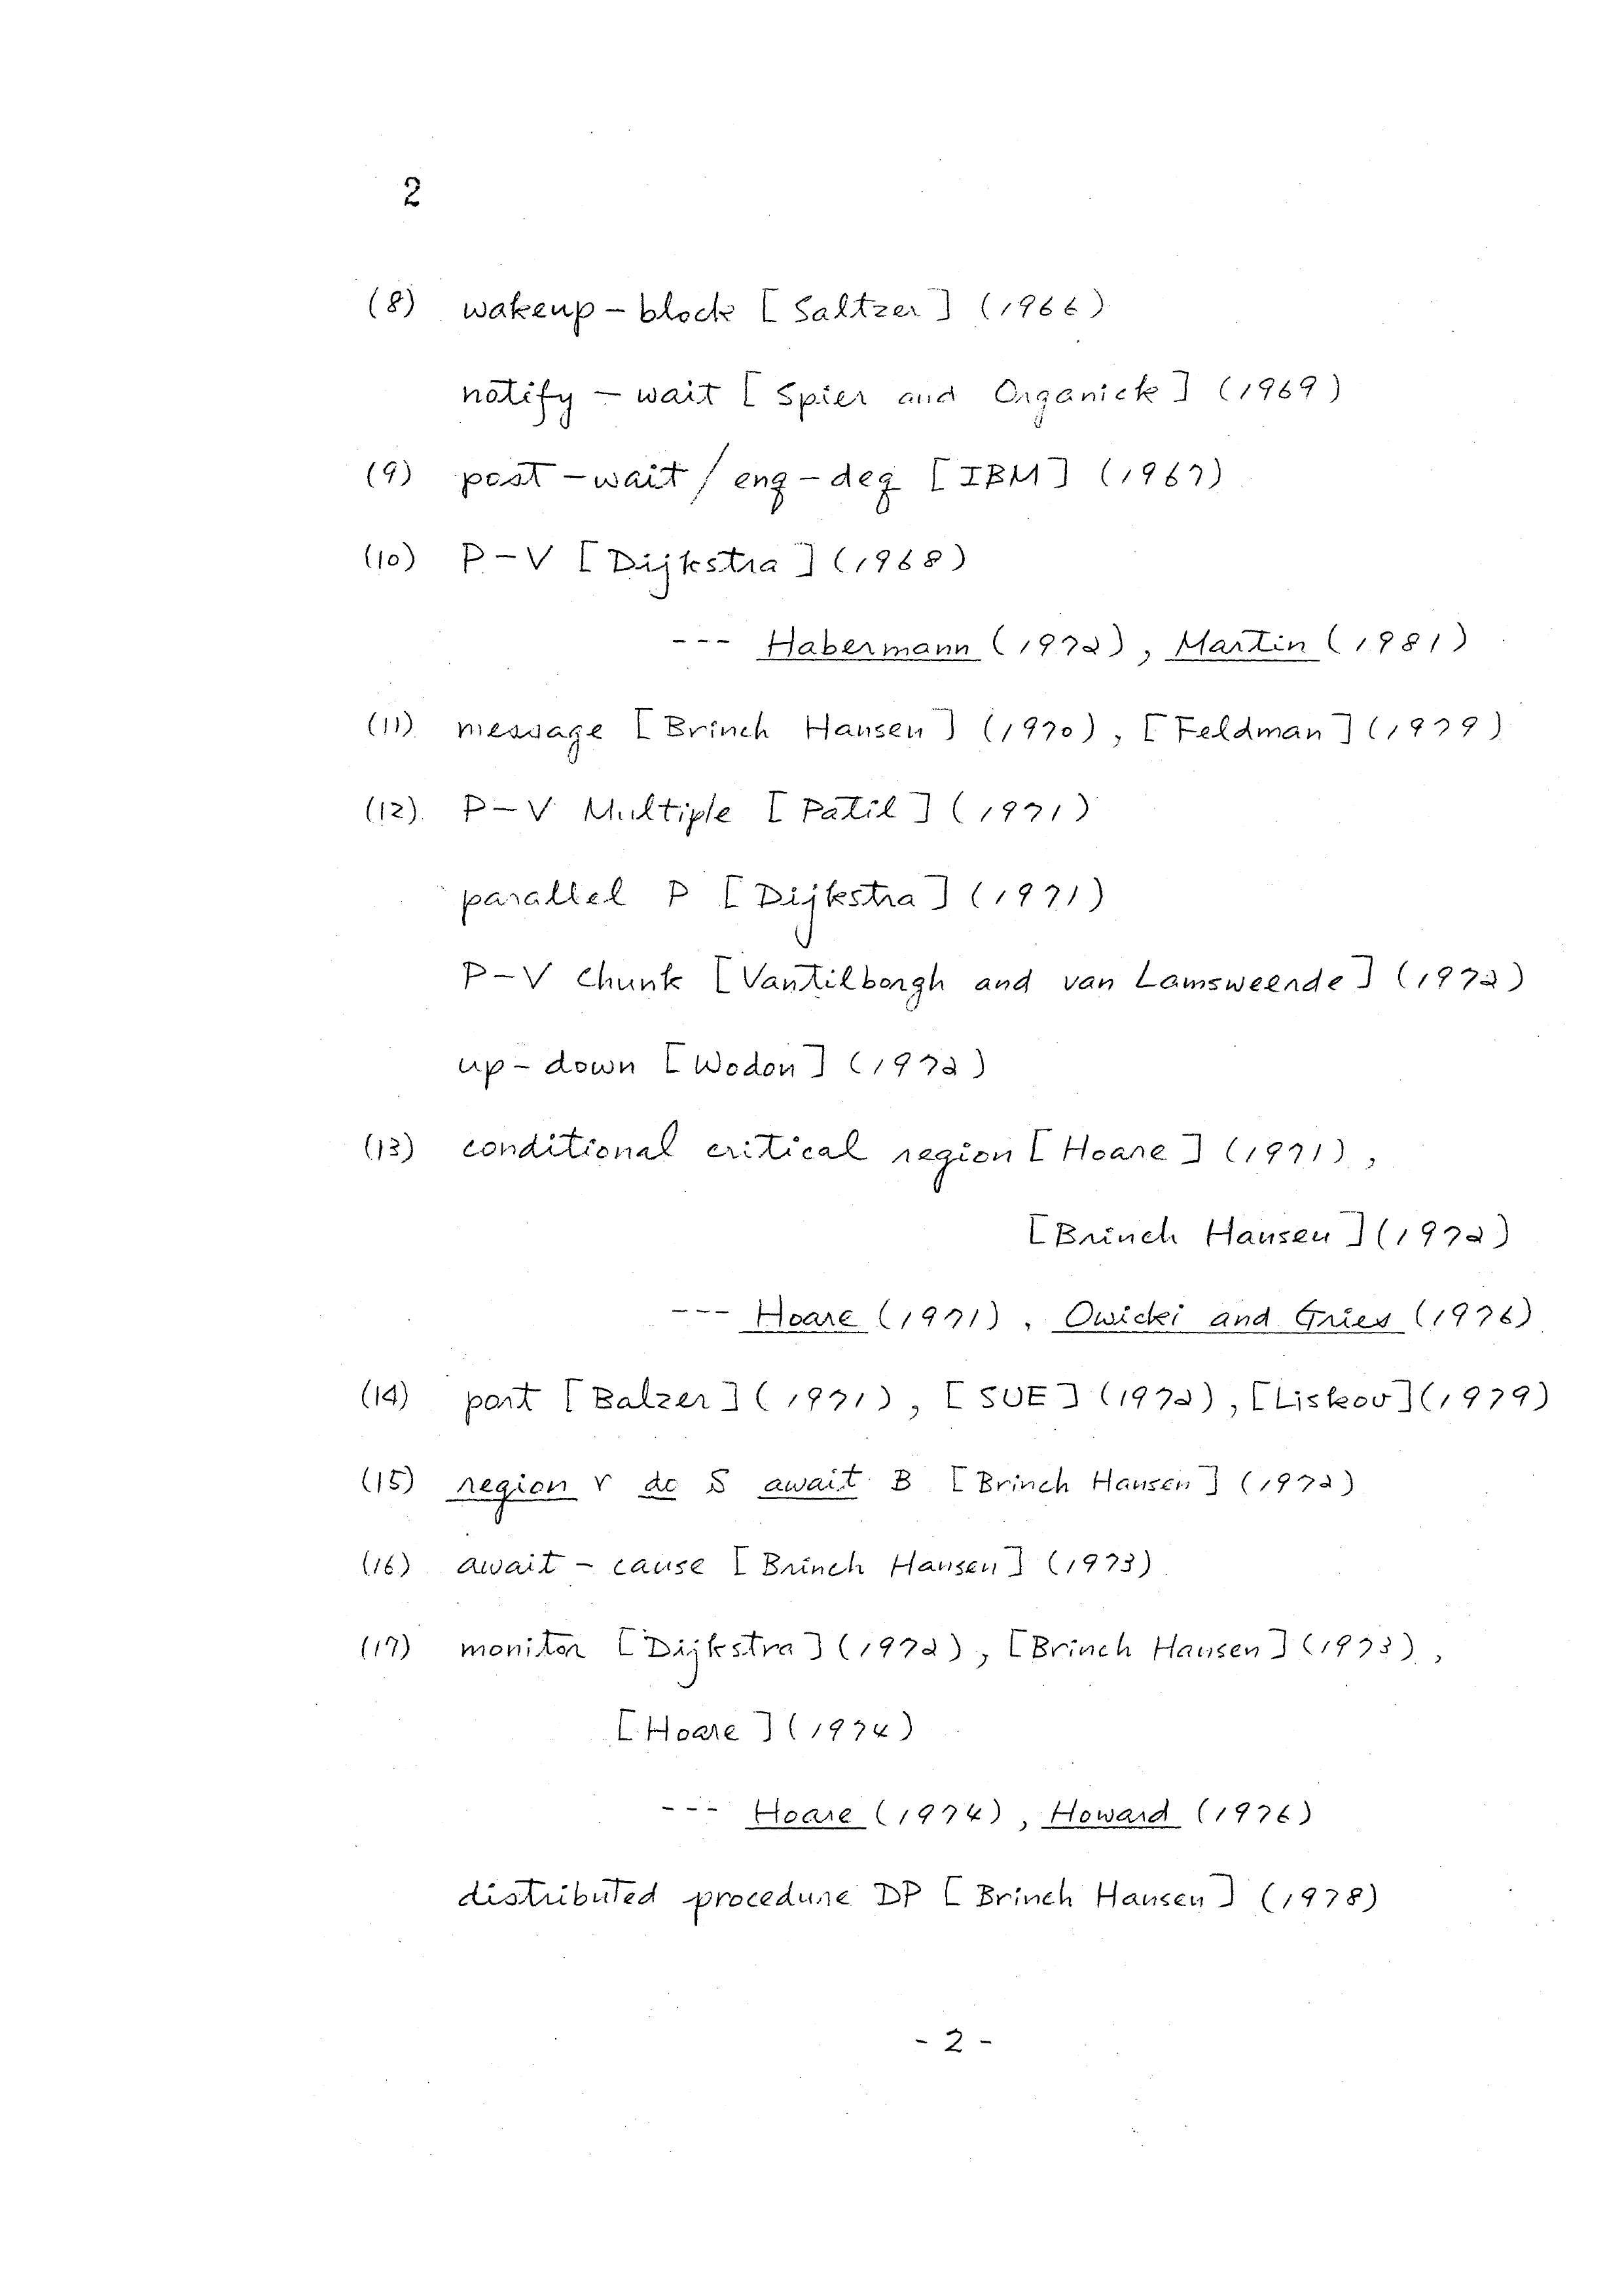 2
(8) wakeup - block [Saltzer] (1966)
notify - wait [Spier and Organick] (1969)
(9) post - wait / enq - deq [IBM] (1967)
(10) P - V [Dijkstra] (1968)
--- Habermann (1972), Martin (1981)
(11) message [Brinch Hansen] (1970), [Feldman] (1979)
(12) P - V Multiple [Patil] (1971)
parallel P [Dijkstra] (1971)
P - V Chunk [Vantilborgh and van Lamsweerde] (1972)
up - down [Wodon] (1972)
(13) conditional critical region [Hoare] (1971),
[Brinch Hansen] (1972)
--- Hoare (1971), Owicki and Gries (1976)
(14) port [Balzer] (1971), [SUE] (1972), [Liskov] (1979)
(15) region v do S await B [Brinch Hansen] (1972)
(16) await - cause [Brinch Hansen] (1973)
(17) monitor [Dijkstra] (1972), [Brinch Hansen] (1973),
[Hoare] (1974)
--- Hoare (1974), Howard (1976)
distributed procedure DP [Brinch Hansen] (1978)
- 2 -